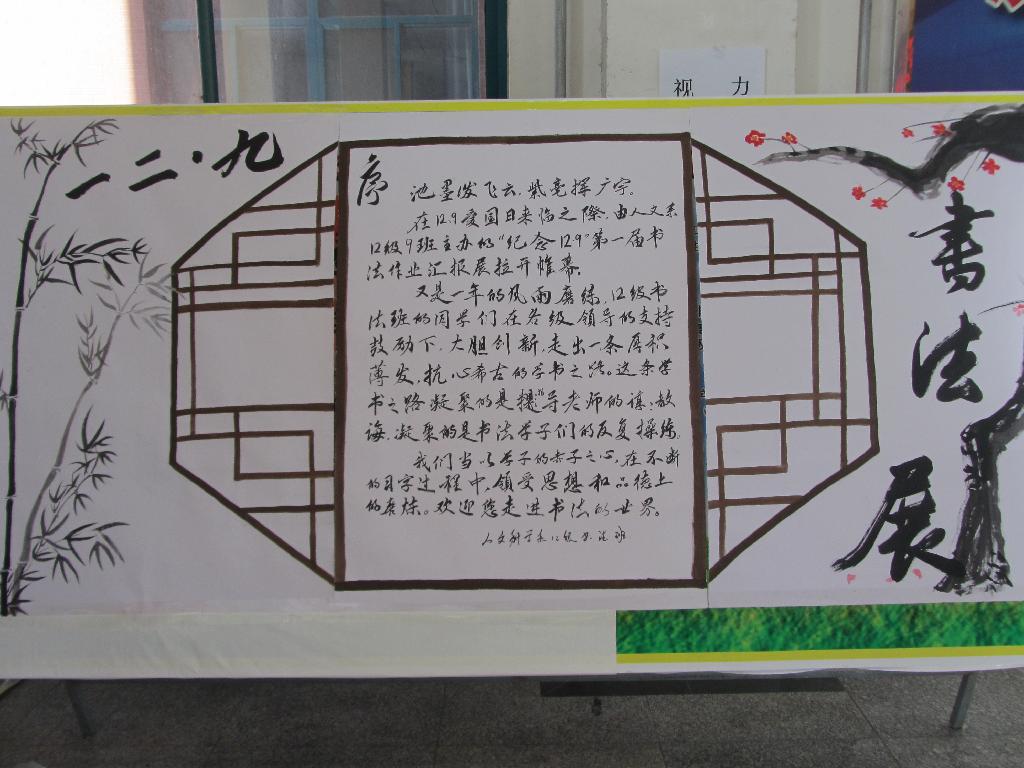 视 力
一二·九
序
池墨泼飞云,紫毫挥广宇。
在12.9爱国日来临之际,由人文系
12级9班主办的“纪念129”第一届书
法作业汇报展拉开帷幕。
又是一年的风雨磨练,12级书
法班的同学们在各级领导的支持
鼓励下,大胆创新,走出一条厚积
薄发,抗心希古的学书之路。这条学
书之路凝聚的是指导老师的谆谆教
诲,凝聚的是书法学子们的反复操练。
我们当以学子的赤子之心,在不断
的习字过程中,领受思想和品德上
的磨炼。欢迎您走进书法的世界。
人文科学系12级书法班
書法展